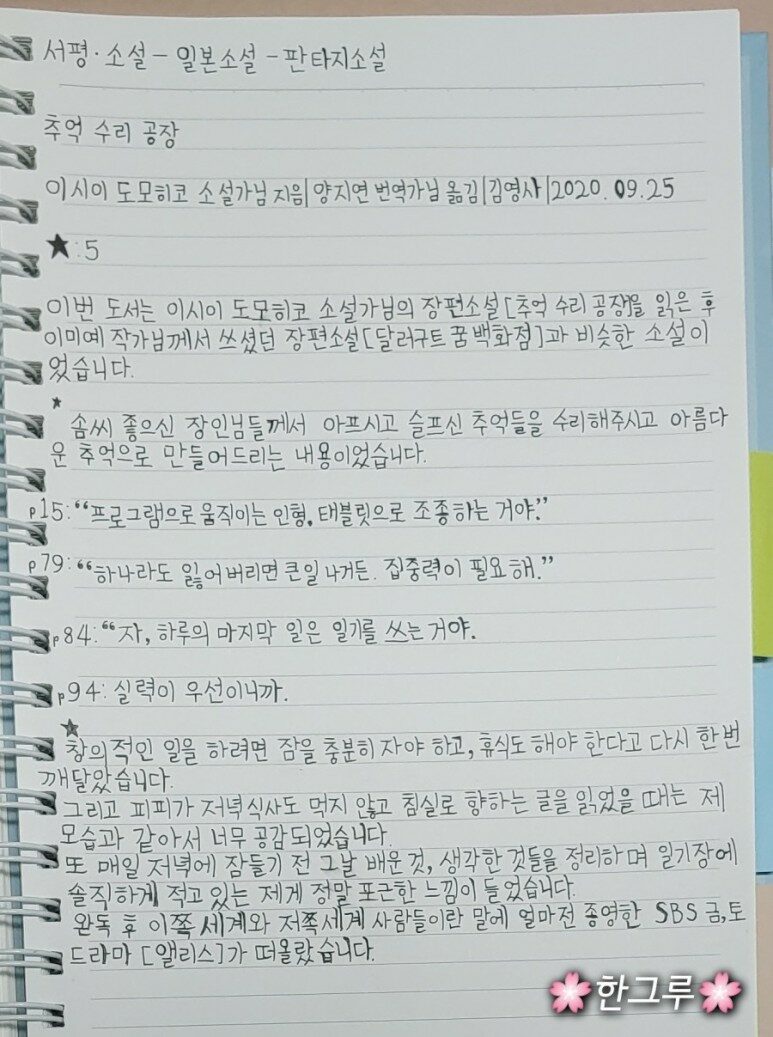 서평·소설-일본소설-판타지소설
추억 수리 공장
이시이 도모히코 소설가님 지음|양지연 번역가님 옮김|김영사|2020.09.25
★:5
이번 도서는 이시이 도모히코 소설가님의 장편소설[추억 수리 공장]을 읽은 후
이미예 작가님께서 쓰셨던 장편소설[달러구트 꿈 백화점]과 비슷한 소설이
었습니다.
★
솜씨 좋으신 장인님들께서 아프시고 슬프신 추억들을 수리해주시고 아름다
운 추억으로 만들어드리는 내용이었습니다.
p15:“프로그램으로 움직이는 인형. 태블릿으로 조종하는 거야.”
p79:“하나라도 잃어버리면 큰일 나거든. 집중력이 필요해.”
p84:“자, 하루의 마지막 일은 일기를 쓰는거야.
p94: 실력이 우선이니까.
★
창의적인 일을 하려면 잠을 충분히 자야 하고, 휴식도 해야 한다고 다시 한번
깨달았습니다.
그리고 피피가 저녁식사도 먹지 않고 침실로 향하는 글을 읽었을 때는 제
모습과 같아서 너무 공감되었습니다.
또 매일 저녁에 잠들기 전 그날 배운것, 생각한 것들을 정리하며 일기장에
솔직하게 적고 있는 제게 정말 포근한 느낌이 들었습니다.
완독 후 이쪽 세계와 저쪽세계 사람들이란 말에 얼마전 종영한 SBS 금,토
드라마 [앨리스]가 떠올랐습니다.
🌸한그루🌸